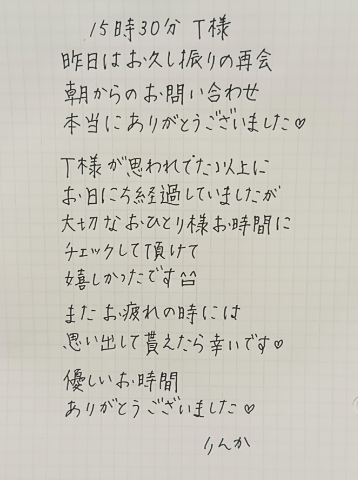 15時30分 T様
昨日はお久し振りの再会
朝からのお問い合わせ
本当にありがとうございました♡
T様が思われてた以上に
お日にち経過していましたが
大切なおひとり様お時間に
チェックして頂けて
嬉しかったです^^
またお疲れの時には
思い出して貰えたら幸いです♡
優しいお時間
ありがとうございました♡
りんか